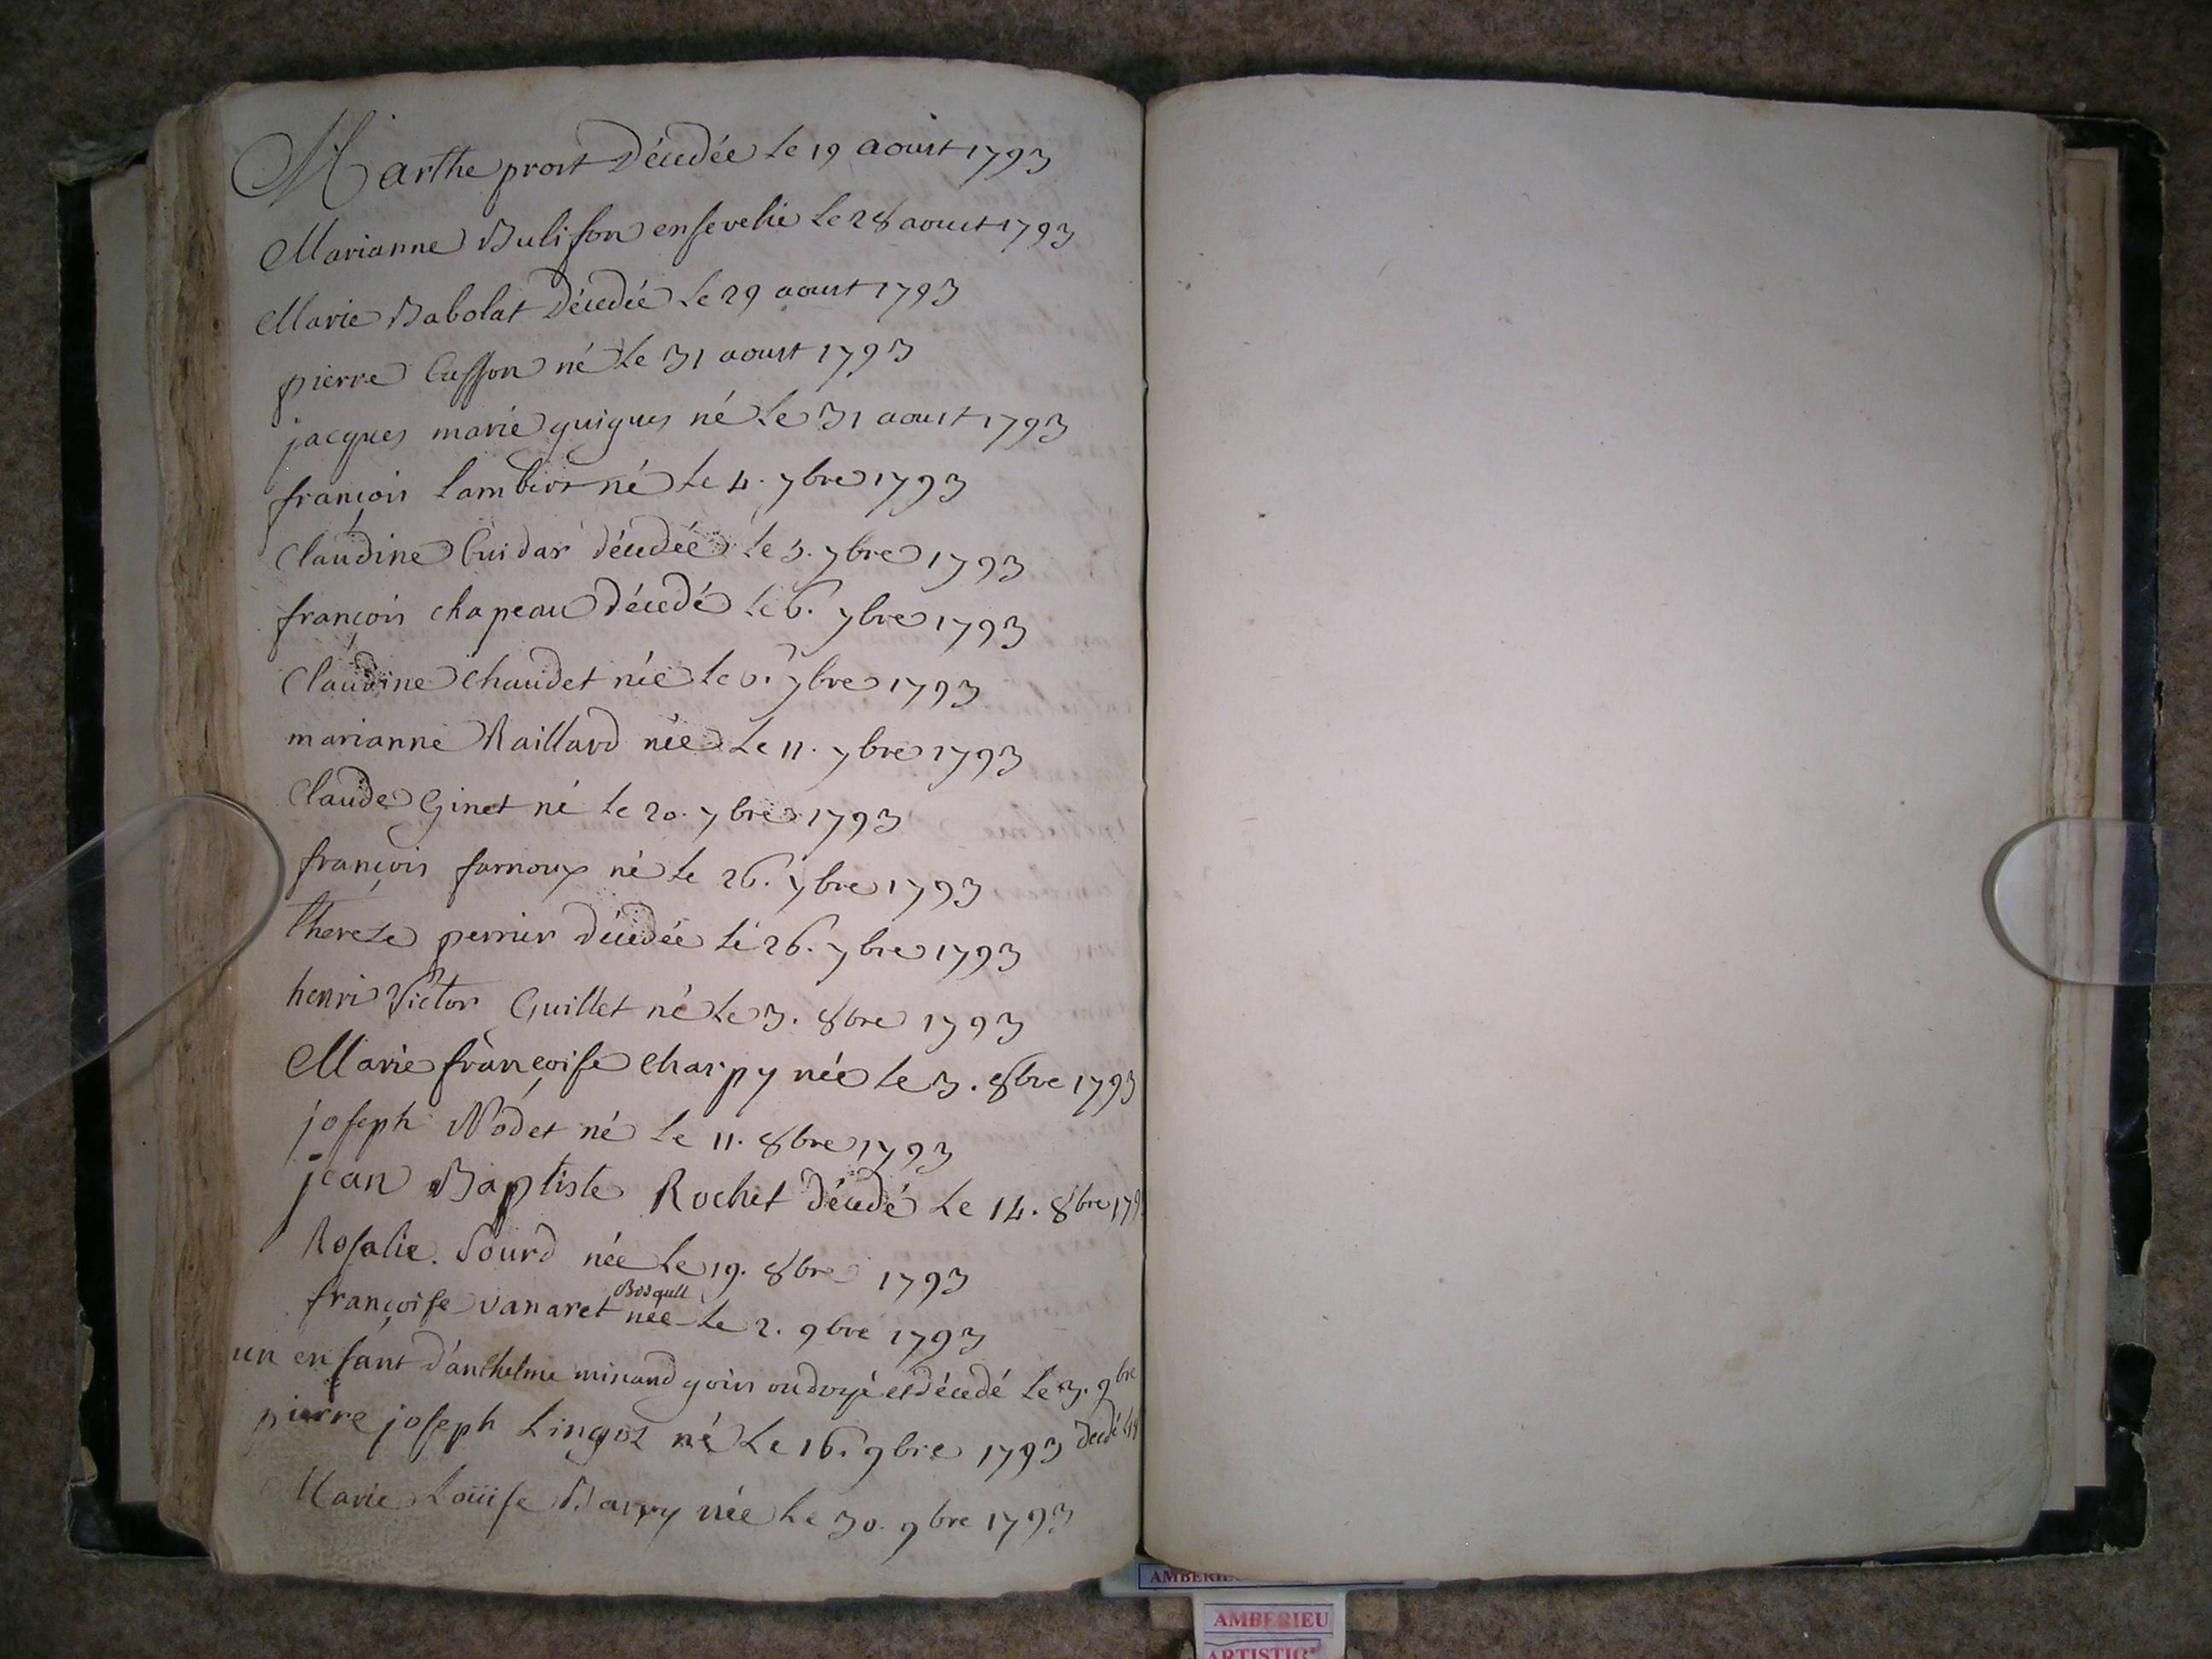 Marthe prost Décedée Le 19 aoust 1793
Marianne Bulifon ensevelie Le 28 aoust 1793
Marie Babolat Décedée Le 29 aoust 1793
pierre Cusson né Le 31 aoust 1793
jacques marie guigues né Le 31 aoust 1793
françois Lambert né Le 4. 7bre 1793
Claudine Cuidar décedée Le 5. 7bre 1793
françois chapeau décedé Le 6. 7bre 1793
Claudine Chaudet née Le 6. 7bre 1793
marianne Raillard née Le 11. 7bre 1793
Claude Ginet né Le 20. 7bre 1793
françois farnoux né Le 26. 7bre 1793
thereze perrier décedée Le 26. 7bre 1793
henri Victor Guillet né Le 3. 8bre 1793
Marie françoise Charpy née Le 3. 8bre 1793
joseph Nodet né Le 11. 8bre 1793
jean Baptiste Rochet décedé Le 14. 8bre 179
Rosalie. Sourd née Le 19. 8bre 1793
françoise vanaret née Le 2. 9bre 1793
un enfant d'anthelme minand goin ondoyé et décedé Le 3. 9bre
pierre joseph Lingot né Le 16. 9bre 1793 decedé
Marie Loüise Barry née Le 30. 9bre 1793
AMBERIEU
ARTISTIQ